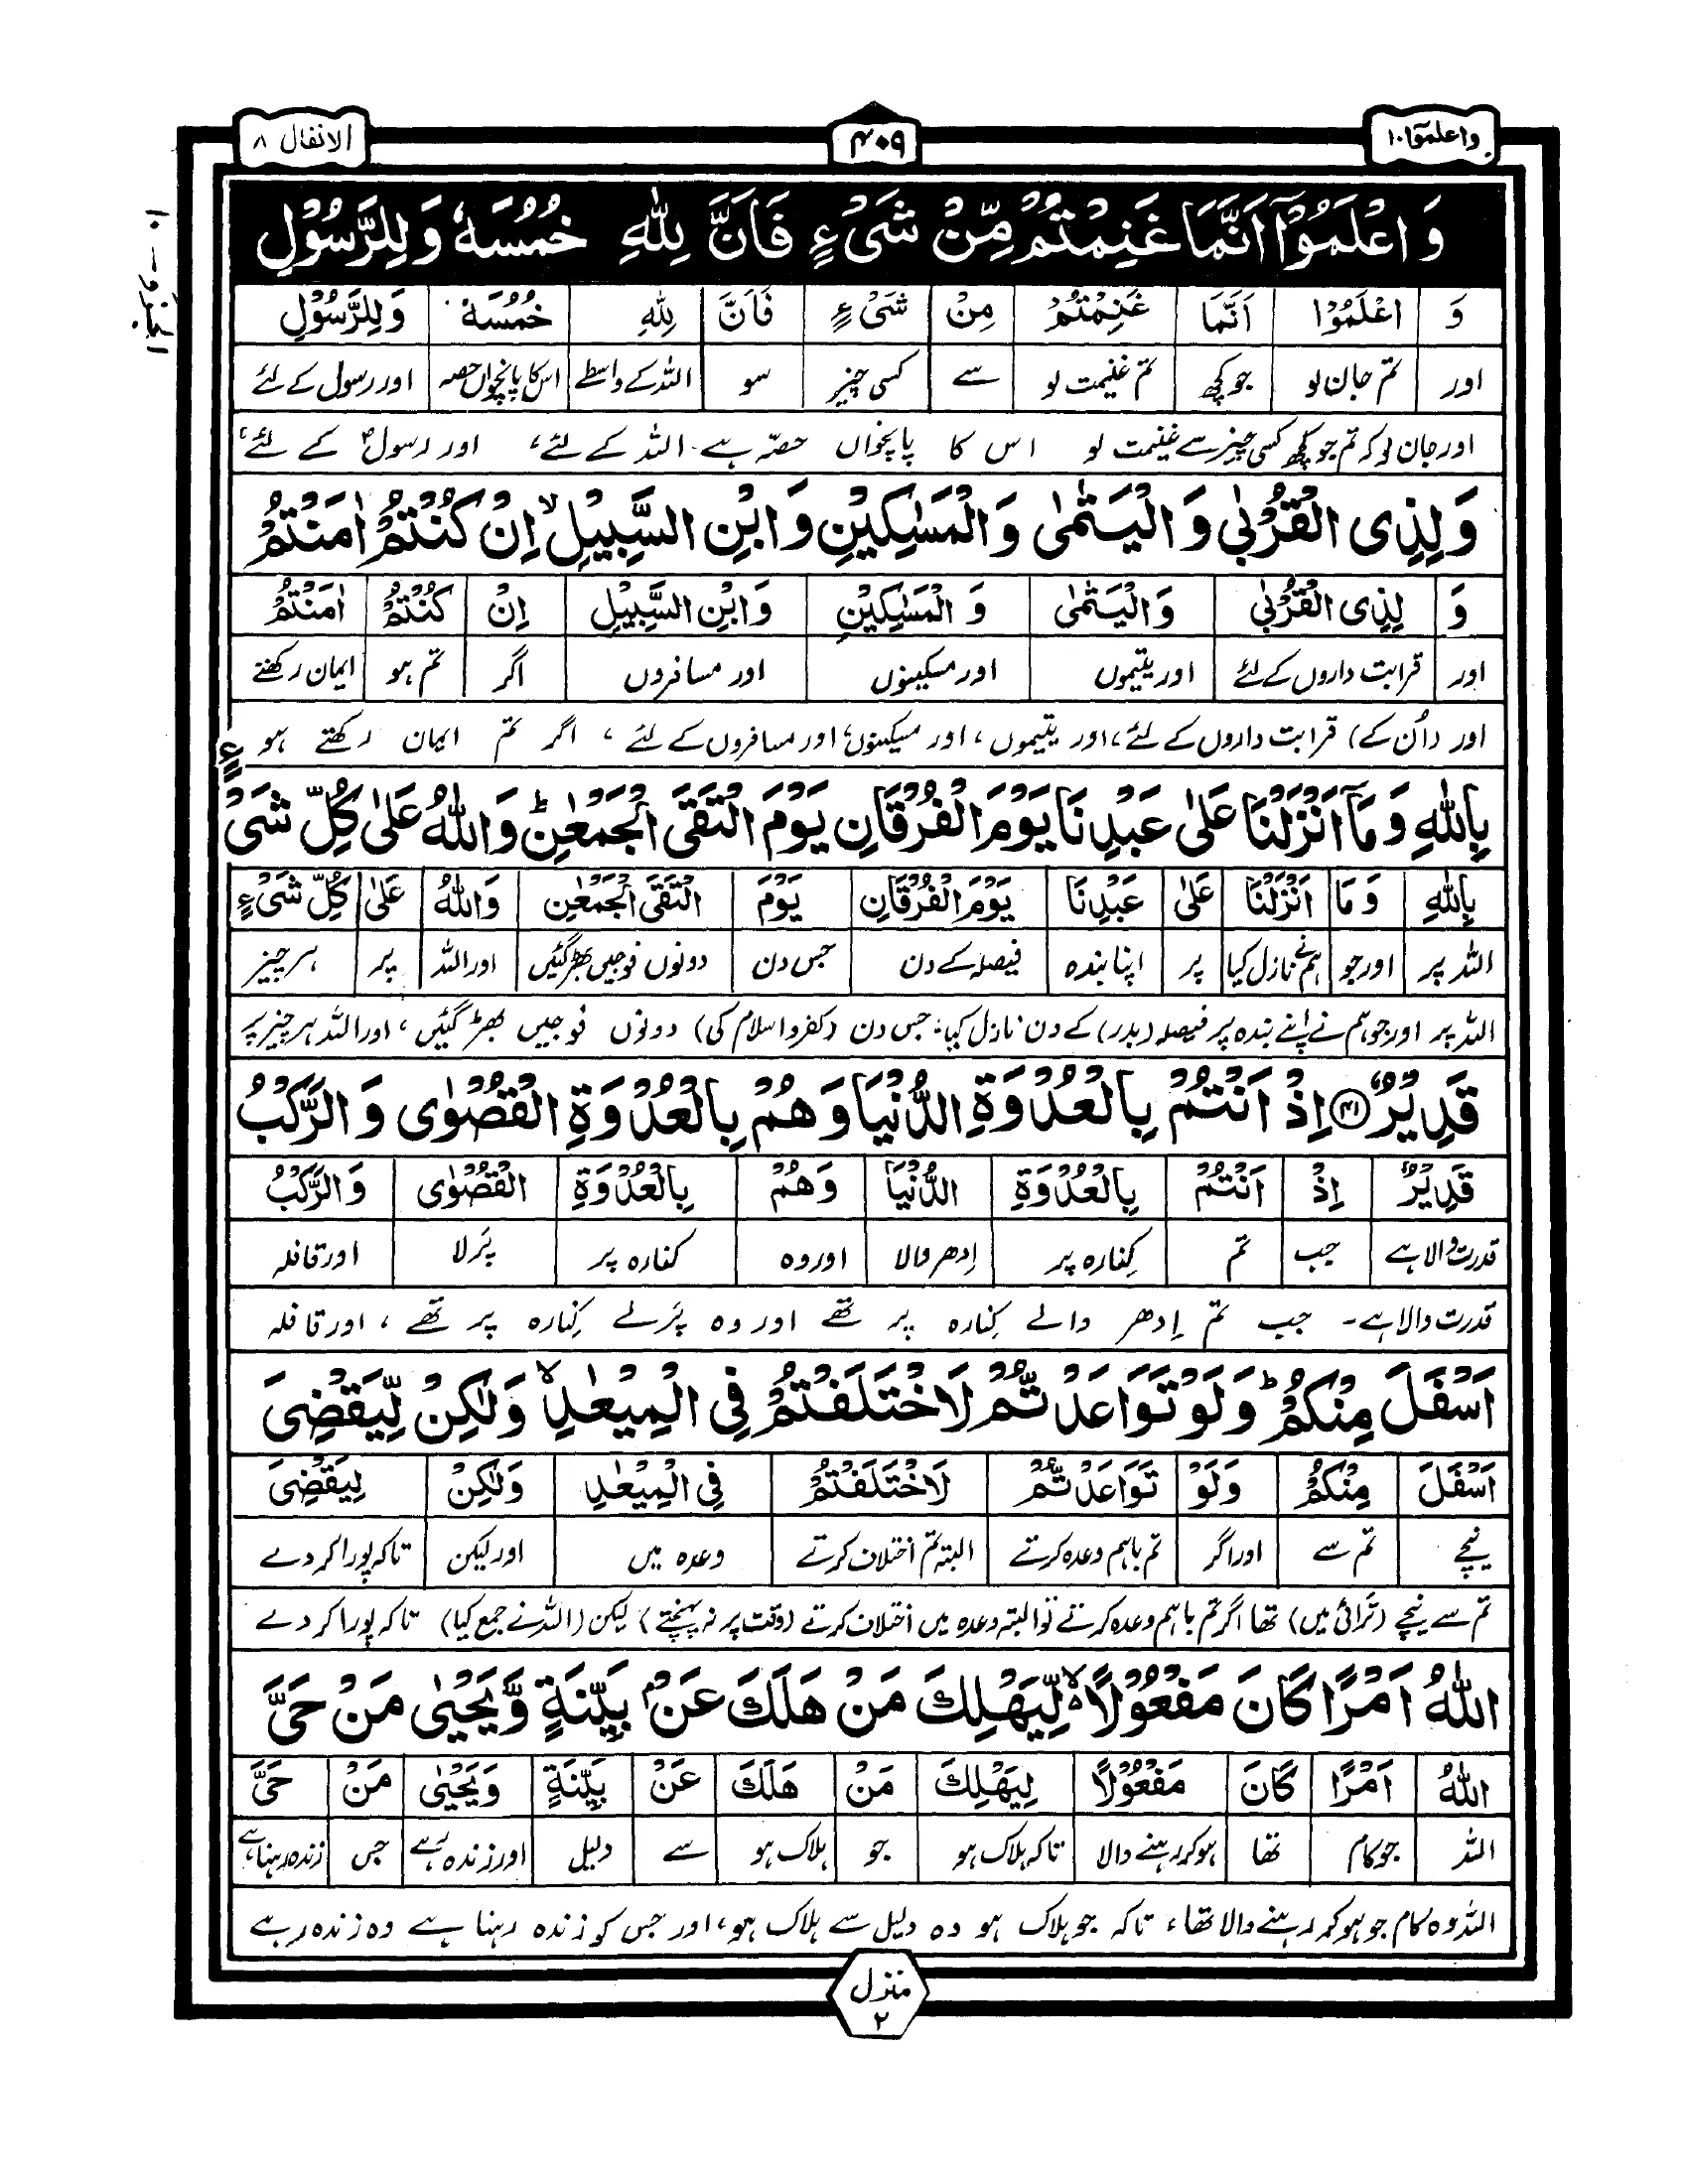 واعلموا ۱۰
۴۰۹
الانفال ۸
الجزو ـ ۱۰
وَاعْلَمُوْۤا اَنَّمَا غَنِمْتُمْ مِّنْ شَیْءٍ فَاَنَّ لِلّٰهِ خُمُسَهٗ وَلِلرَّسُوْلِ
وَ اعْلَمُوْا اَنَّمَا غَنِمْتُمْ مِنْ شَیْءٍ فَاَنَّ لِلّٰهِ خُمُسَهٗ وَلِلرَّسُوْلِ
اور تم جان لو جو کچھ تم غنیمت لو سے کسی چیز سو اللہ کے واسطے اس کا پانچواں حصہ اور رسول کے لئے
اور جان لو کہ تم جو کچھ کسی چیز سے غنیمت لو اس کا پانچواں حصّہ ہے اللہ کے لئے، اور رسولؐ کے لئے،
وَلِذِی الْقُرْبٰی وَالْیَتٰمٰی وَالْمَسٰكِیْنِ وَابْنِ السَّبِیْلِ ۙ اِنْ كُنْتُمْ اٰمَنْتُمْ
وَ لِذِی الْقُرْبٰی وَالْیَتٰمٰی وَ الْمَسٰكِیْنِ وَابْنِ السَّبِیْلِ اِنْ كُنْتُمْ اٰمَنْتُمْ
اور قرابت داروں کے لئے اور یتیموں اور مسکینوں اور مسافروں اگر تم ہو ایمان رکھتے
اور (اُن کے) قرابت داروں کے لئے، اور یتیموں، اور مسکینوں، اور مسافروں کے لئے، اگر تم ایمان رکھتے ہو
بِاللّٰهِ وَمَاۤ اَنْزَلْنَا عَلٰی عَبْدِنَا یَوْمَ الْفُرْقَانِ یَوْمَ الْتَقَی الْجَمْعٰنِ ؕ وَاللّٰهُ عَلٰی كُلِّ شَیْءٍ
بِاللّٰهِ وَمَا اَنْزَلْنَا عَلٰی عَبْدِنَا یَوْمَ الْفُرْقَانِ یَوْمَ الْتَقَی الْجَمْعٰنِ وَاللّٰهُ عَلٰی كُلِّ شَیْءٍ
اللہ پر اور جو ہم نے نازل کیا پر اپنا بندہ فیصلہ کے دن جس دن دونوں فوجیں بھڑ گئیں اور اللہ پر ہر چیز
اللہ پر اور جو ہم نے اپنے بندہ پر فیصلہ (بدر) کے دن نازل کیا، جس دن (کفر و اسلام کی) دونوں فوجیں بھڑ گئیں، اور اللہ ہر چیز پر
قَدِیْرٌ ۴۱ اِذْ اَنْتُمْ بِالْعُدْوَةِ الدُّنْیَا وَهُمْ بِالْعُدْوَةِ الْقُصْوٰی وَالرَّكْبُ
قَدِیْرٌ اِذْ اَنْتُمْ بِالْعُدْوَةِ الدُّنْیَا وَهُمْ بِالْعُدْوَةِ الْقُصْوٰی وَالرَّكْبُ
قدرت والا ہے جب تم کِنارہ پر اِدھر والا اور وہ کنارہ پر پَرلا اور قافلہ
قدرت والا ہے۔ جب تم اِدھر والے کِنارہ پر تھے اور وہ پَرلے کِنارہ پر تھے، اور قافلہ
اَسْفَلَ مِنْكُمْ ؕ وَلَوْ تَوَاعَدْتُّمْ لَاخْتَلَفْتُمْ فِی الْمِیْعٰدِ ۙ وَلٰكِنْ لِّیَقْضِیَ
اَسْفَلَ مِنْكُمْ وَلَوْ تَوَاعَدْتُّمْ لَاخْتَلَفْتُمْ فِی الْمِیْعٰدِ وَلٰكِنْ لِیَقْضِیَ
نیچے تم سے اور اگر تم باہم وعدہ کرتے البتہ تم اختلاف کرتے وعدہ میں اور لیکن تاکہ پورا کردے
تم سے نیچے (ترائی میں) تھا اگر تم باہم وعدہ کرتے تو البتہ وعدہ میں اختلاف کرتے (وقت پر نہ پہنچتے) لیکن (اللہ نے جمع کیا) تاکہ پورا کردے
اللّٰهُ اَمْرًا كَانَ مَفْعُوْلًا ۙ لِّیَهْلِكَ مَنْ هَلَكَ عَنْۢ بَیِّنَةٍ وَّیَحْیٰی مَنْ حَیَّ
اللّٰهُ اَمْرًا كَانَ مَفْعُوْلًا لِیَهْلِكَ مَنْ هَلَكَ عَنْ بَیِّنَةٍ وَیَحْیٰی مَنْ حَیَّ
اللہ جو کام تھا ہو کر رہنے والا تاکہ ہلاک ہو جو ہلاک ہو سے دلیل اور زندہ رہے جس زندہ رہنا ہے
اللہ وہ کام جو ہو کر رہنے والا تھا، تاکہ جو ہلاک ہو وہ دلیل سے ہلاک ہو، اور جس کو زندہ رہنا ہے وہ زندہ رہے
منزل
۲